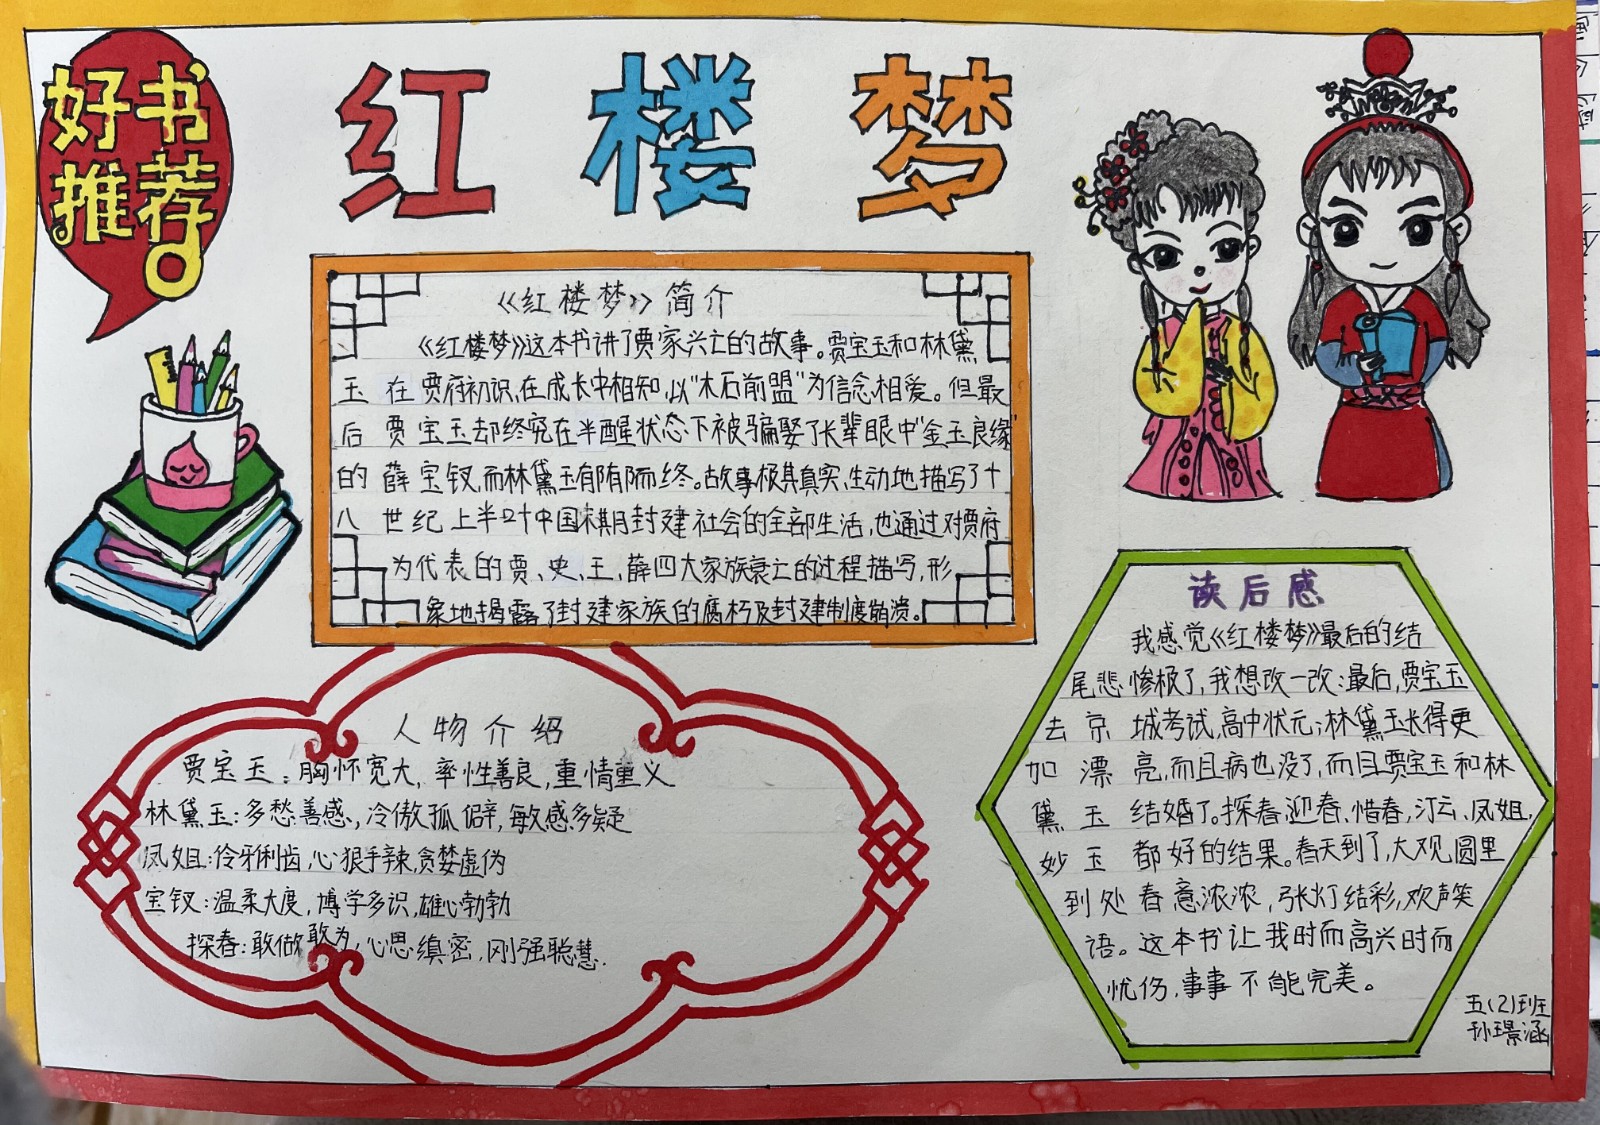 好书
推荐
红楼梦
《红楼梦》简介
《红楼梦》这本书讲了贾家兴亡的故事。贾宝玉和林黛
玉在贾府初识,在成长中相知,以“木石前盟”为信念相爱。但最
后贾宝玉却终究在半醒状态下被骗娶了长辈眼中“金玉良缘”
的薛宝钗,而林黛玉郁郁而终。故事极其真实、生动地描写了十
八世纪上半叶中国末期封建社会的全部生活,也通过对贾府
为代表的贾、史、王、薛四大家族衰亡的过程描写,形
象地揭露了封建家族的腐朽及封建制度崩溃。
人物介绍
贾宝玉:胸怀宽大,率性善良,重情重义
林黛玉:多愁善感,冷傲孤僻,敏感多疑
凤姐:伶牙俐齿,心狠手辣,贪婪虚伪
宝钗:温柔大度,博学多识,雄心勃勃
探春:敢做敢为,心思缜密,刚强聪慧.
读后感
我感觉《红楼梦》最后的结
尾悲惨极了,我想改一改:最后,贾宝玉
去京城考试,高中状元;林黛玉长得更
加漂亮,而且病也没了,而且贾宝玉和林
黛玉结婚了。探春、迎春、惜春,汀云、凤姐,
妙玉都好的结果。春天到了,大观圆里
到处春意浓浓,张灯结彩,欢声笑
语。这本书让我时而高兴时而
忧伤,事事不能完美。
五(2)班
孙璟涵